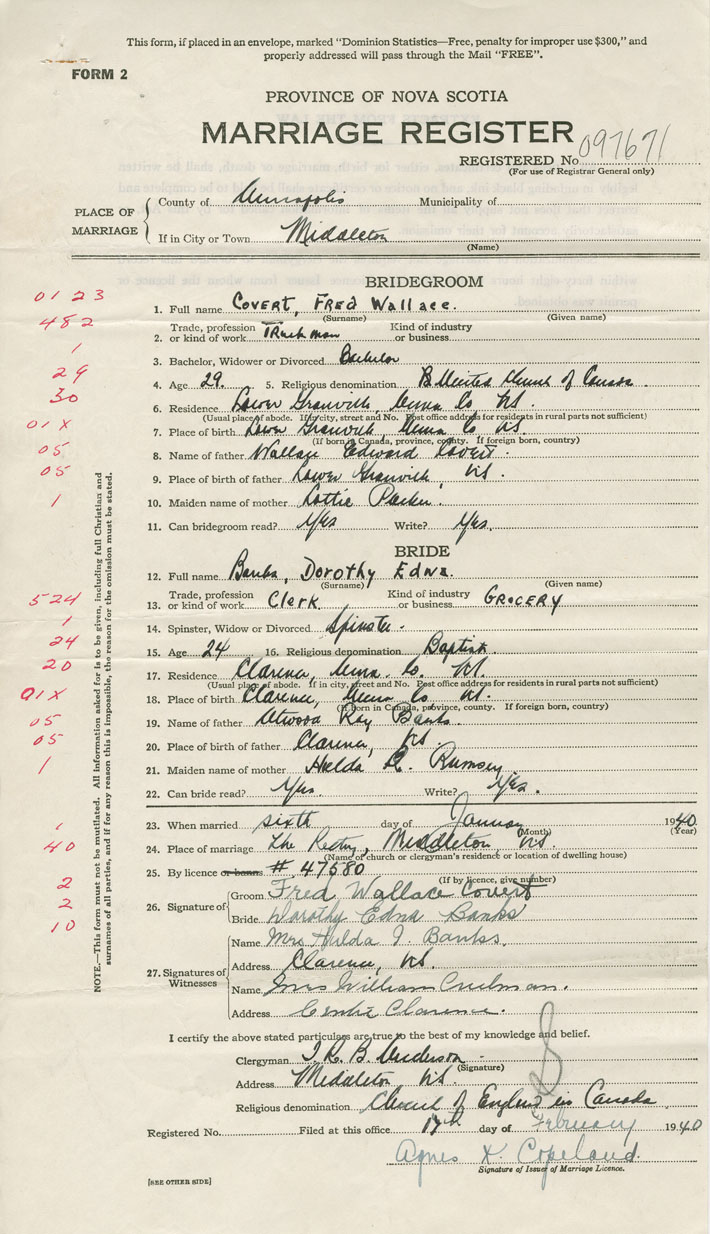 This form, if placed in an envelope, marked "Dominion Statistics—Free, penalty for improper use $300," and
properly addressed will pass through the Mail "FREE".
FORM 2
PROVINCE OF NOVA SCOTIA
MARRIAGE REGISTER
REGISTERED No. 097671
(For use of Registrar General only)
PLACE OF MARRIAGE
County of Annapolis Municipality of
If in City or Town Middleton
(Name)
BRIDEGROOM
0123
1. Full name COVERT, FRED Wallace.
(Surname) (Given name)
482
2. Trade, profession or kind of work Truckman Kind of industry or business
1
3. Bachelor, Widower or Divorced Bachelor
29
4. Age 29. 5. Religious denomination United Church of Canada.
30
6. Residence Lower Granville, Anna Co NS.
(Usual place of abode. If in city, street and No. Post office address for residents in rural parts not sufficient)
01X
7. Place of birth Lower Granville, Anna Co NS.
(If born in Canada, province, county. If foreign born, country)
05
8. Name of father Wallace Edward Covert.
05
9. Place of birth of father Lower Granville, NS.
1
10. Maiden name of mother Lottie Parker.
11. Can bridegroom read? Yes Write? Yes.
BRIDE
12. Full name Banks, Dorothy Edna.
(Surname) (Given name)
524
13. Trade, profession or kind of work Clerk Kind of industry or business GROCERY
1
14. Spinster, Widow or Divorced Spinster.
24
15. Age 24 16. Religious denomination Baptist
20
17. Residence Clarence, Anna. Co. NS.
(Usual place of abode. If in city, street and No. Post office address for residents in rural parts not sufficient)
01X
18. Place of birth Clarence, Anna Co NS.
(If born in Canada, province, county. If foreign born, country)
05
19. Name of father Atwood Ray Banks.
05
20. Place of birth of father Clarence, NS.
1
21. Maiden name of mother Hulda Rumsey.
22. Can bride read? Yes Write? Yes.
1
23. When married sixth day of January 1940
(Month) (Year)
40
24. Place of marriage The Rectory, Middleton, NS.
(Name of church or clergyman's residence or location of dwelling house)
2
25. By licence or banns # 47580
(If by licence, give number)
2
10
26. Signature of
Groom Fred Wallace Covert
Bride Dorothy Edna Banks
27. Signatures of Witnesses
Name Mrs Hulda I. Banks.
Address Clarence, NS.
Name Mrs William
Address Centre Clarence.
I certify the above stated particulars are true to the best of my knowledge and belief.
Clergyman B. Anderson
(Signature)
Address Middleton NS.
Religious denomination Church of England in Canada
Registered No. Filed at this office 17th day of February 1940
Agnes K. Copeland.
Signature of Issuer of Marriage Licence.
[SEE OTHER SIDE]
NOTE.—This form must not be mutilated. All information asked for is to be given, including full Christian and
surnames of all parties, and if for any reason this is impossible, the reason for the omission must be stated.